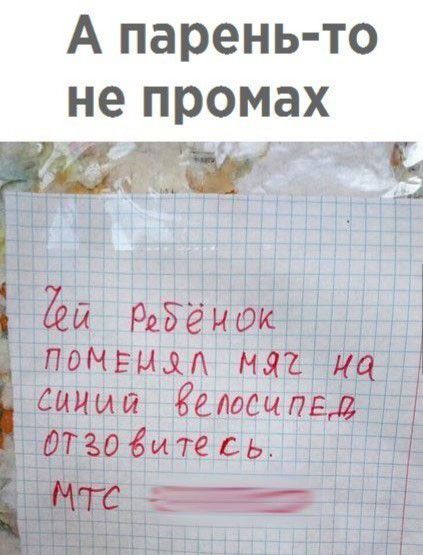 А парень-то
не промах
Чей ребёнок
поменял мяч на
синий велосипед
отзовитесь.
МТС